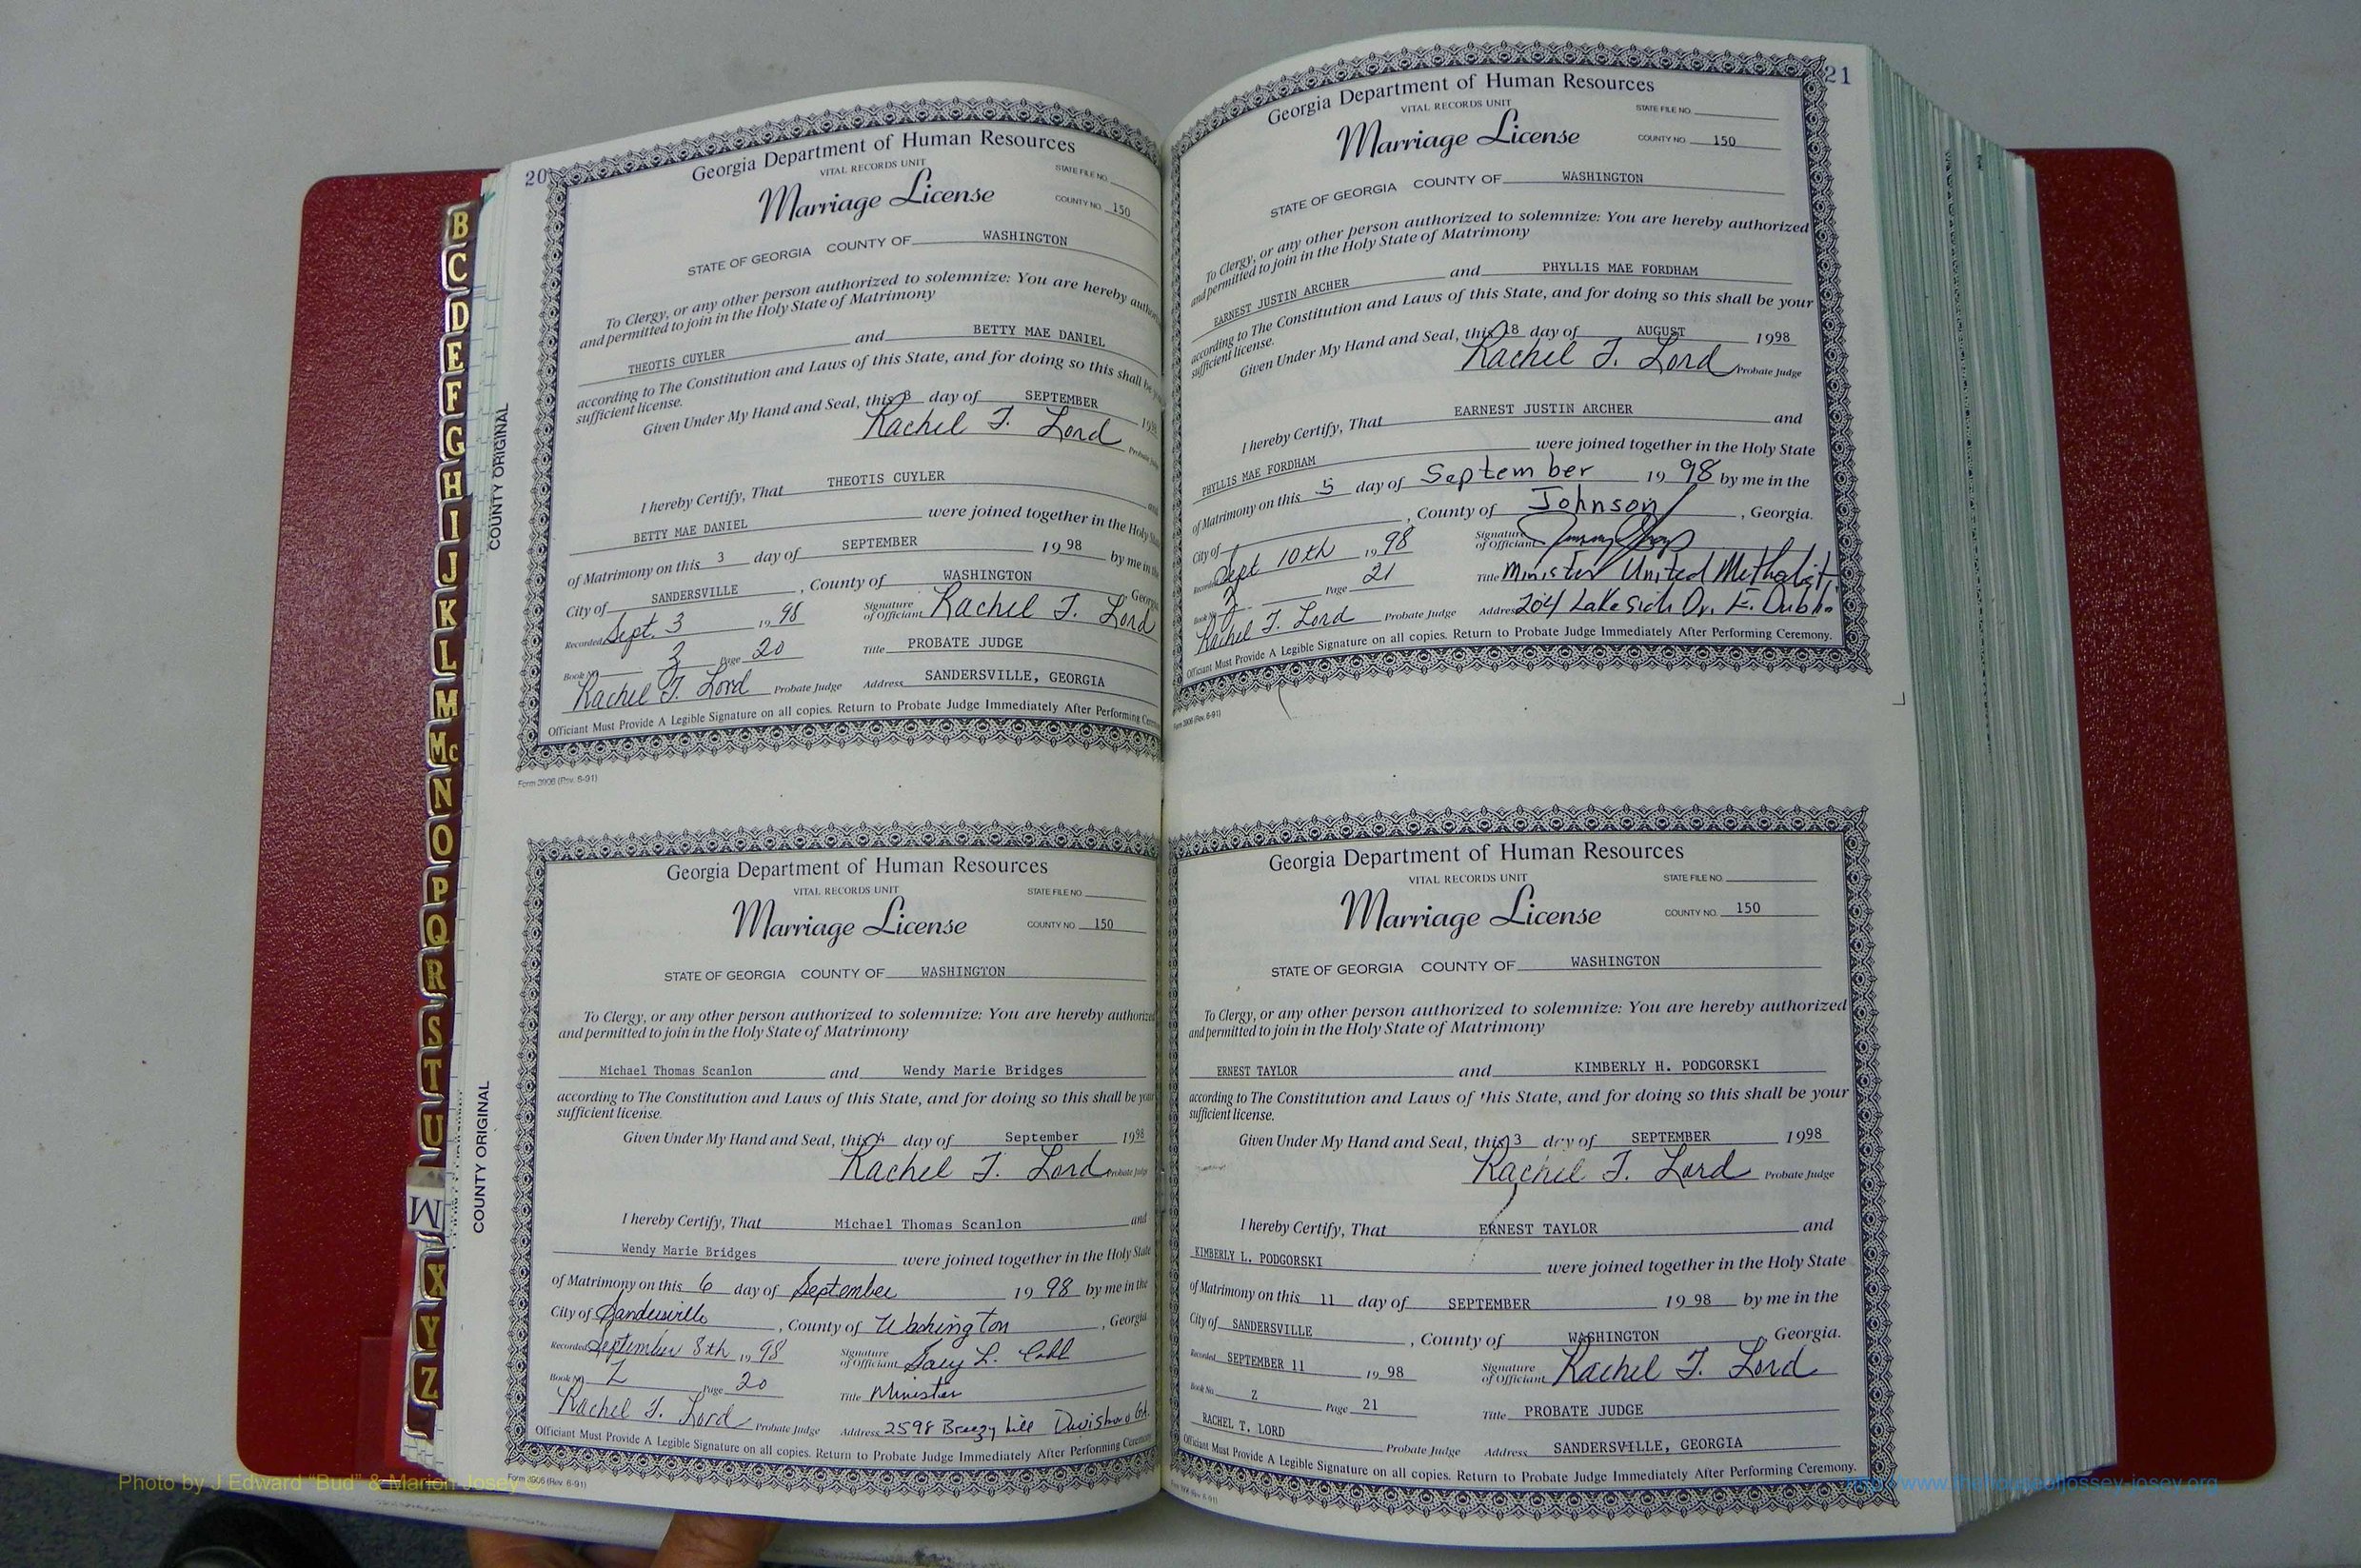 20
Georgia Department of Human Resources
VITAL RECORDS UNIT
STATE FILE NO.
Marriage License
COUNTY NO. 150
STATE OF GEORGIA COUNTY OF WASHINGTON
To Clergy, or any other person authorized to solemnize: You are hereby
and permitted to join in the Holy State of Matrimony
THEOTIS CUYLER and BETTY MAE DANIEL
according to The Constitution and Laws of this State, and for doing so this shall be
sufficient license.
Given Under My Hand and Seal, this 3 day of SEPTEMBER 1998
Rachel T. Lord
I hereby Certify, That THEOTIS CUYLER and
BETTY MAE DANIEL were joined together in the Holy
of Matrimony on this 3 day of SEPTEMBER 19 98 by me in the
City of SANDERSVILLE, County of WASHINGTON, Georgia
Recorded Sept. 3 19 98 Signature of Officiant Rachel T. Lord
Book No. Z Page 20 Title PROBATE JUDGE
Rachel T. Lord Probate Judge Address SANDERSVILLE, GEORGIA
Officiant Must Provide A Legible Signature on all copies. Return to Probate Judge Immediately After Performing
Form 3906 (Rev. 6-91)
COUNTY ORIGINAL
Georgia Department of Human Resources
VITAL RECORDS UNIT
STATE FILE NO.
Marriage License
COUNTY NO. 150
STATE OF GEORGIA COUNTY OF WASHINGTON
To Clergy, or any other person authorized to solemnize: You are hereby authorized
and permitted to join in the Holy State of Matrimony
Michael Thomas Scanlon and Wendy Marie Bridges
according to The Constitution and Laws of this State, and for doing so this shall be your
sufficient license.
Given Under My Hand and Seal, this 4 day of September 1998
Rachel T. Lord Probate Judge
I hereby Certify, That Michael Thomas Scanlon and
Wendy Marie Bridges were joined together in the Holy State
of Matrimony on this 6 day of September 19 98 by me in the
City of Sandersville, County of Washington, Georgia
Recorded September 8th 19 98 Signature of Officiant
Book No. Z Page 20 Title Minister
Rachel T. Lord Probate Judge Address 2598 Breezy Hill Davisboro GA.
Officiant Must Provide A Legible Signature on all copies. Return to Probate Judge Immediately After Performing Ceremony
Form 3906 (Rev. 6-91)
COUNTY ORIGINAL
21
Georgia Department of Human Resources
VITAL RECORDS UNIT
STATE FILE NO.
Marriage License
COUNTY NO. 150
STATE OF GEORGIA COUNTY OF WASHINGTON
To Clergy, or any other person authorized to solemnize: You are hereby authorized
and permitted to join in the Holy State of Matrimony
EARNEST JUSTIN ARCHER and PHYLLIS MAE FORDHAM
according to The Constitution and Laws of this State, and for doing so this shall be your
sufficient license.
Given Under My Hand and Seal, this 18 day of AUGUST 1998
Rachel T. Lord Probate Judge
I hereby Certify, That EARNEST JUSTIN ARCHER and
PHYLLIS MAE FORDHAM were joined together in the Holy State
of Matrimony on this 5 day of September 19 98 by me in the
City of , County of Johnson, Georgia.
Recorded Sept 10th 19 98 Signature of Officiant
Book No. Z Page 21 Title Minister United Methodist
Rachel T. Lord Probate Judge Address 204 Lakeside Dr. E. Dublin
Officiant Must Provide A Legible Signature on all copies. Return to Probate Judge Immediately After Performing Ceremony.
Form 3906 (Rev. 6-91)
Georgia Department of Human Resources
VITAL RECORDS UNIT
STATE FILE NO.
Marriage License
COUNTY NO. 150
STATE OF GEORGIA COUNTY OF WASHINGTON
To Clergy, or any other person authorized to solemnize: You are hereby authorized
and permitted to join in the Holy State of Matrimony
ERNEST TAYLOR and KIMBERLY H. PODGORSKI
according to The Constitution and Laws of this State, and for doing so this shall be your
sufficient license.
Given Under My Hand and Seal, this 3 day of SEPTEMBER 1998
Rachel T. Lord Probate Judge
I hereby Certify, That ERNEST TAYLOR and
KIMBERLY L. PODGORSKI were joined together in the Holy State
of Matrimony on this 11 day of SEPTEMBER 19 98 by me in the
City of SANDERSVILLE, County of WASHINGTON, Georgia.
Recorded SEPTEMBER 11 19 98 Signature of Officiant Rachel T. Lord
Book No. Z Page 21 Title PROBATE JUDGE
RACHEL T. LORD Probate Judge Address SANDERSVILLE, GEORGIA
Officiant Must Provide A Legible Signature on all copies. Return to Probate Judge Immediately After Performing Ceremony.
B
C
D
E
F
G
H
I
J
K
L
M
Mc
N
O
P
Q
R
S
T
U
W
X
Y
Z
Photo by J Edward "Bud" & Marion Josey ©
http://www.thehouseofjossey-josey.org